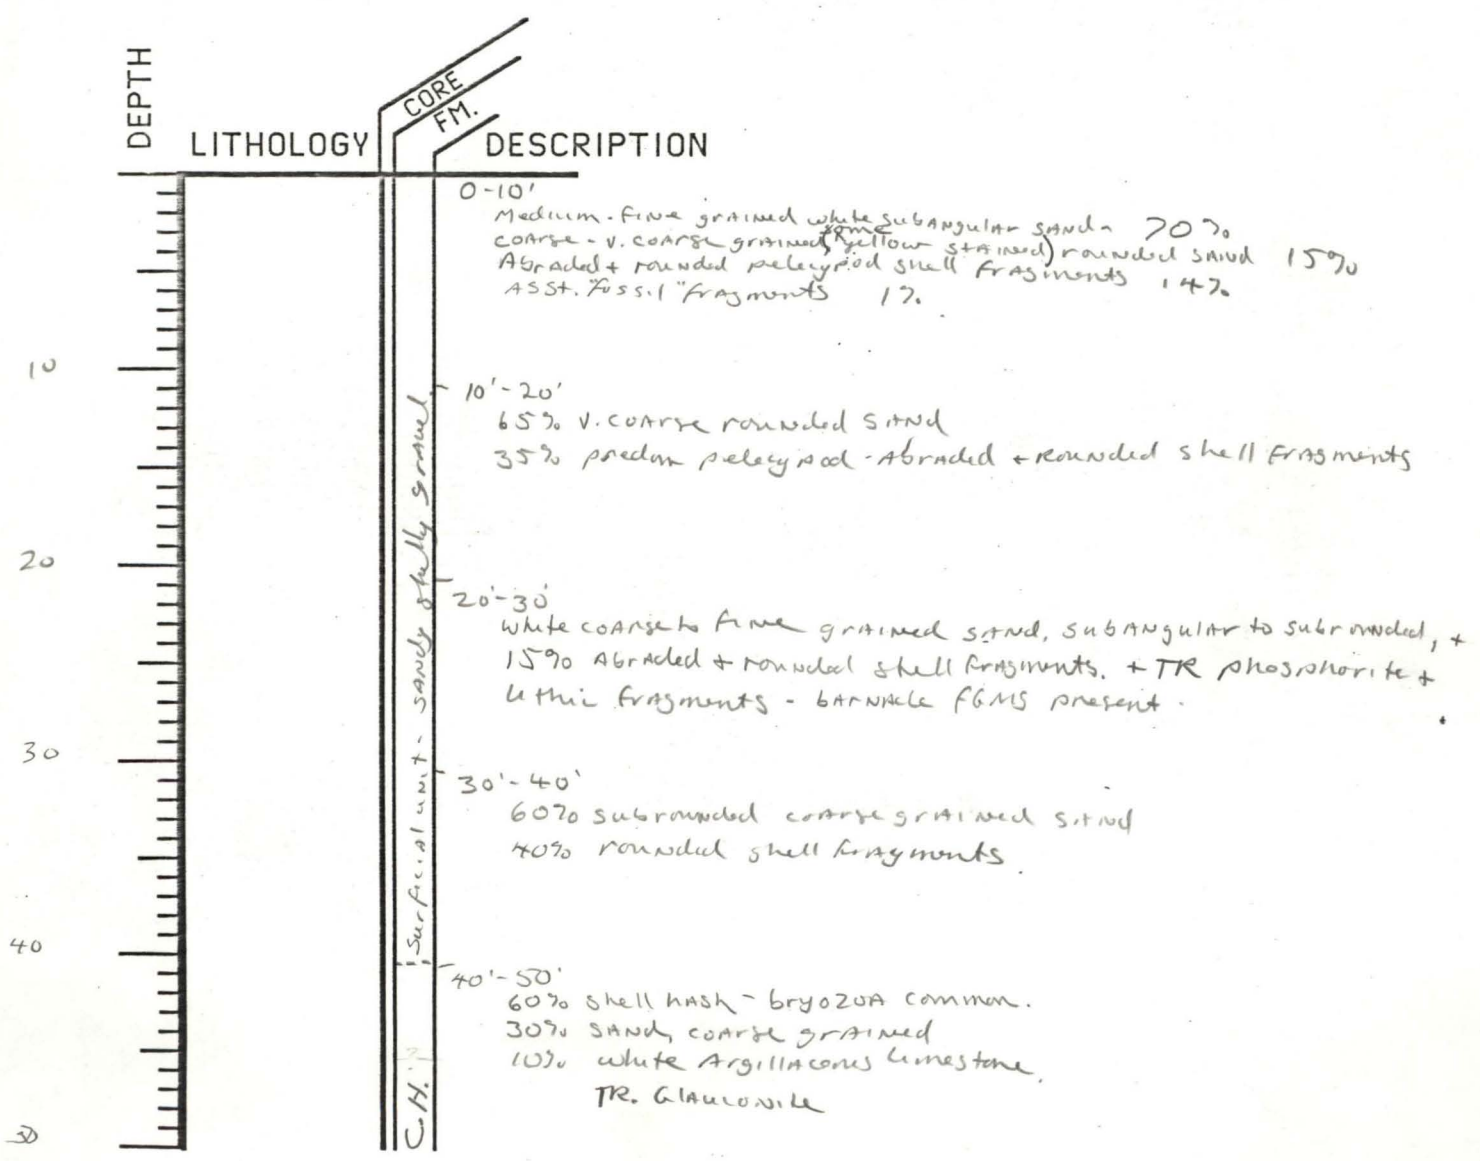 DEPTH
LITHOLOGY
CORE
FM.
DESCRIPTION
0-10'
Medium-fine grained white subangular sand - 70%
coarse - v. coarse grained (some yellow stained) rounded sand 15%
Abraded + rounded pelecypod shell fragments 14%
Asst. "fossil" fragments 1%
10
10'-20'
65% v. coarse rounded sand
35% predom pelecypod - Abraded + Rounded shell fragments
20
20'-30'
white coarse to fine grained sand, subangular to subrounded, +
15% Abraded + rounded shell fragments. + TR phosphorite +
lithic fragments - barnacle FGMS present.
30
30'-40'
60% subrounded coarse grained sand
40% rounded shell fragments
Surficial unit - sandy shelly gravel
40
40'-50'
60% shell hash - bryozoa common.
30% sand, coarse grained
10% white Argillaceous limestone.
TR. Glauconite
?
C.H.
50